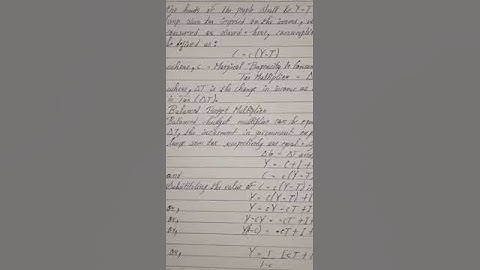 the hands of the people shall be Y-T
lump sum tax imposed on the income,
consumed or saved. Hence, consumption
be defined as:
C = c(Y-T)
where, c = Marginal Propensity to Consume
Tax Multiplier = Δ
where, ΔT is the change in income as
in Tax (ΔT).
Balanced Budget Multiplier
Balanced-budget multiplier can be
ΔT, the increment in government
lump sum tax respectively are equal
ΔG = ΔT
Y = C+I+
and C = c(Y-T)
Substituting the value of C = c(Y-T) in
Y = c(Y-T)+I
or, Y = cY-cT+I
or, Y-cY = -cT+I+
or, Y(1-c) = -cT+I+
or, Y = 1/1-c [-cT+I+